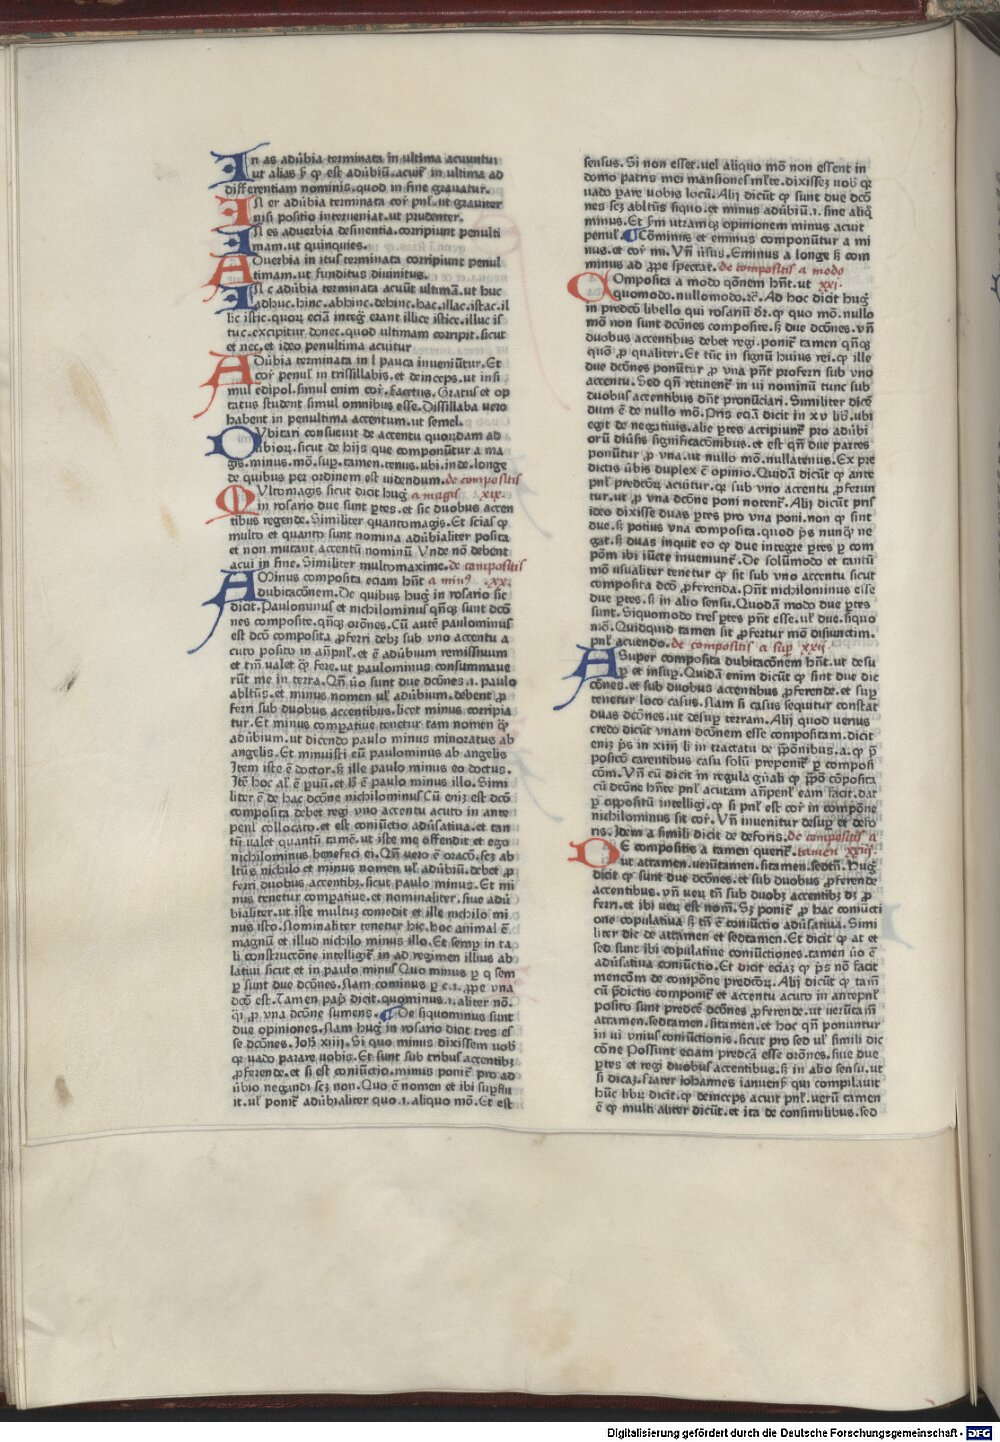 In as adűbia terminata in ultima acuuntur
ut alias ꝫ ꝙ est adűbiű. acuit̃ in ultima ad
differentiam nominis. quod in fine grauatur.
In er adűbia terminata cor̃ pnł. ut grauiter
nisi positio interueniat. ut prudenter.
In es aduerbia desinentia. corripiunt penulti
mam. ut quinquies.
Aduerbia in itus terminata corripiunt penul
timam. ut funditus diuinitus.
In c adűbia terminata acuűt ultimã. ut huc
adhuc. hinc. abhinc. dehinc. hac. illac. istac. il
lic istic. quoꝝ eciã integꝶ erant illice istice. illuc is
tuc. excipitur donec. quod ultimam corripit. sicut
et nec. et ideo penultima acuitur
Adűbia terminata in l pauca inueniűtur. Et
cor̃ penuł in trissillabis. et deinceps. ut insi
mul edipol. simul enim cor̃. facetus. Gratus et op
tatus student simul omnibus esse. Dissillaba uero
habent in penultima accentum. ut semel.
Dubitari consueuit de accentu quorudam ad
űbioꝝ. sicut de hijs que componűtur a ma
gis. minus. mõ. sup̱. tamen. tenus. ubi. inde. longe
de quibus per ordinem est uidendum. de compositis
Multomagis sicut dicit hug̃ a magis xix.
in rosario due sunt p̱tes. et sic duobus accen
tibus regende. Similiter quantomagis. Et scias ꝙ
multo et quanto sunt nomina adűbialiter posita
et non mutant accentű nominű Vnde nõ debent
acui in fine. Similiter multomaxime. de compositis
A Minus composita eciam hñt a minꝰ .xx.
dubitacõnem. De quibus hug̃ in rosario sic
dicit. Paulominus et nichilominus qñqꝫ sunt dcõ
nes composite. qñqꝫ orõnes. Cű autẽ paulominus
est dcõ composita ꝓferri debꝫ sub vno accentu a
cuto posito in añpñł. et ẽ adűbium remissiuum
et tm̃ valet ꝙ̃ fere. ut paulominus consummaue
rűt me in terra. Qñ űo sunt due dcõnes .i. paulo
abltűs. et minus nomen uł adűbium. debent ꝓ
ferri sub duobus accentibus. licet minus corripia
tur. Et minus comp̱atiue tenetur tam nomen ꝙ̃
adűbium. ut dicendo paulo minus minoratus ab
angelis. Et minuisti eű paulominus ab angelis
Item iste ẽ doctor. ꝫ ille paulo minus eo doctus.
Itẽ hoc ał ẽ p̱uű. et ħ ẽ paulo minus illo. Simi
liter ẽ de hac dcõne nichilominus Cű eniꝫ est dcõ
composita debet regi vno accentu acuto in ante
penł collocato. et est coniűctio adűsatiua. et tan
tű ualet quantű tamẽ. ut iste me offendit et ego
nichilominus benefeci ei. Qñ vero ẽ oracõ. scꝫ ab
ltűs nichilo et minus nomen uł adűbiű. debet ꝓ
ferri duobus accentibꝫ. sicut paulo minus. Et mi
nus tenetur comp̱atiue. et nominaliter. siue adű
bialiter. ut iste multuꝫ comedit et ille nichilo mi
nus isto. Nominaliter tenetur hic. hoc animal ẽ
magnű et illud nichilo minus illo. Et semp̱ in ta
li constructõne intelligit̃ in ad regimen illius ab
latiui sicut et in paulo minus Quo minus p̱ q sem
p̱ sunt due dcõnes. Nam cominus p̱ c .i. ꝓpe vna
dcõ est. Tamen pap̃ dicit. quominus .i. aliter nõ.
q̃i ꝓ vna dcõne sumens. ¶ De siquominus sunt
due opiniones. Nam hug̃ in rosario dicit tres es
se dcõnes. Joħ xiiij. Si quo minus dixissem uoḃ
qꝛ uado parare uobis. Et sunt sub tribus accentibꝫ
ꝓferende. et si est coniűctio. minus ponit̃ pro ad
űbio negãndi scꝫ non. Quo ẽ nomen et ibi sup̱flu
it. uł ponit̃ adűbialiter quo .i. aliquo mõ. Et est
sensus. Si non esset. uel aliquo mõ non essent in
domo patris mei mansiones mlte. dixisseꝫ uoḃ qꝛ
uado pare uobis locű. Alij dicűt ꝙ sunt due dcõ
nes scꝫ abltűs siquo. et minus adűbiű .i. sine aliq̃
minus. Et ſm utramqꝫ opinionem minus acuit
penuł. ¶ Cõminus et eminus componűtur a mi
nus. et cor̃ mi. Vñ űsus. Eminus a longe ꝫ com
minus ad ꝓpe spectat. de compositis a modo
Composita a modo q̃õnem hñt. ut xxi.
quomodo. nullomodo. ꝛc̃. Ad hoc dicit hug̃
in predc̃o libello qui rosariű dr̃. ꝙ quo mõ. nullo
mõ non sunt dcõnes composite. ꝫ due dcõnes. vñ
duobus accentibus debet regi. ponit̃ tamen qñqꝫ
quõ ꝓ qualiter. Et tűc in signű huius rei. ꝙ ille
due dcõnes ponűtur ꝓ vna pñt proferri sub vno
accentu. Sed qñ retinent̃ in ui nominű tunc sub
duobus accentibus dñt pronűciari. Similiter dicẽ
dum ẽ de nullo mõ. Pris̃ eciã dicit in xv lib̃. ubi
egit de negatiuis. alie p̱tes accipiunt̃ pro adűbi
orű diűsis significacõnibus. et est qñ due partes
ponűtur ꝓ vna. ut nullo mõ. nullatenus. Ex pre
dictis űbis duplex ẽ opinio. Quidã dicűt ꝙ ante
pnł predcõꝝ acuitur. qꝛ sub vno accentu ꝓferun
tur. ut ꝓ vna dcõne poni notent̃. Alij dicűt pris̃
ideo dixisse duas p̱tes pro vna poni. non ꝙ sint
due. ꝫ potius vna composita. quod p̃s nunqꝫ ne
gat. ꝫ duas inquit eo ꝙ due integre p̱tes p̱ com
põm ibi iűcte inueniunt̃. De solűmodo et tantű
mõ usualiter tenetur ꝙ sit sub vno accentu sicut
composita dcõ ꝓferenda. Pñt nichilominus esse
due p̱tes. ꝫ in alio sensu. Quodã modo due p̱tes
sunt. Siquomodo tres p̱tes pñt esse. uł due. siquo
mõ. Quidquid tamen sit ꝓfertur mõ disiunctim.
pnł acuendo. de compositis a sup̱ xxij.
A Super composita dubitacõnem hñt. ut desu
p̱ et insup̱. Quidã enim dicűt ꝙ sint due dic
cõnes. et sub duobus accentibus ꝓferende. et sup̱
tenetur loco casus. Nam si casus sequitur constãt
duas dcõnes. ut desup̱ terram. Alij quod uerius
credo dicűt vnam dcõnem esse compositam. dicit
eniꝫ p̃s in xiiij li in tractatu de p̃põnibus. a. ꝙ p̃
posicõ carentibus casu solű preponit̃ p̱ composi
cõm. Vñ cű dicit in regula gñali ꝙ p̃põ cõposita
cű dcõne hñte pnł acutam añpenł eam facit. dat̃
p̱ oppositű intelligi. ꝙ si pnł est cor̃ in compõne
nichilominus sit cor̃. Vñ inuenitur desup̱ et defo
ris. Idem a simili dicit de deforis. de compositis a
De compositis a tamen querit̃. tamen xxiij.
ut attamen. uerűtamen. sitamen. sedtñ. Hug̃
dicit ꝙ sunt due dcõnes. et sub duobus ꝓferende
accentibus. vñ ueꝝ tñ sub duobꝫ accentibꝫ dꝫ ꝓ
ferri. et ibi ueꝝ est nom̃. Sꝫ ponit̃ ꝓ hac coniűcti
one copulatiua ꝫ tñ ẽ coniűctio adűsatiua. Simi
liter dic de attamen et sedtamen. Et dicit ꝙ at et
sed sunt ibi copulatiue coniűctiones. tamen űo ẽ
adűsatiua coniűctio. Et dicit eciaꝫ ꝙ p̃s nõ facit
mencõm de compõne predcõꝝ. Alij dicűt ꝙ tam̃
cű p̃dictis componit̃ et accentu acuto in antepnł
posito sunt predcẽ dcõnes ꝓferende. ut uerűtam̃
attamen. sedtamen. sitamen. et hoc qñ ponuntur
in ui vnius coniűctionis. sicut pro sed uł simili dic
cõne Possunt eciam predcã esse orõnes. siue due
p̱tes et regi duobus accentibus. ꝫ in alio sensu. ut
si dicaꝫ. frater iohannes ianuens̃ qui compilauit
hűc librű dicit. ꝙ deinceps acuit pnł. uerű tamen
ẽ ꝙ multi aliter dicűt. et ita de consimilibus. sed
Digitalisierung gefördert durch die Deutsche Forschungsgemeinschaft - DFG